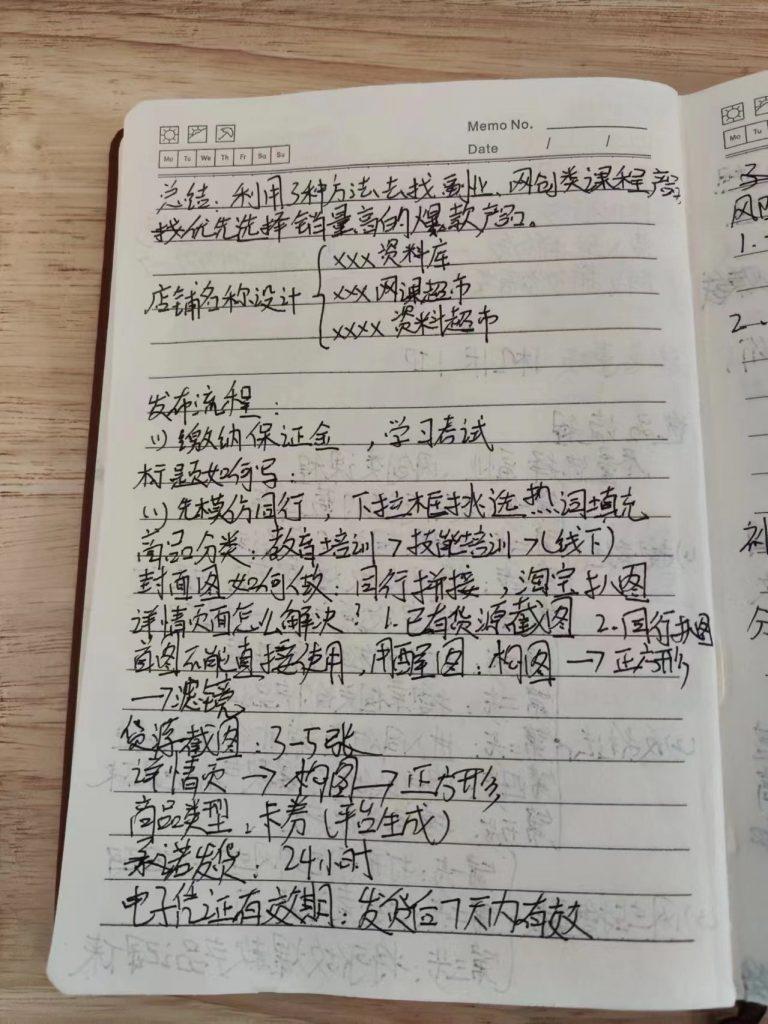 Memo No.
Date / /
Mo Tu We Th Fr Sa Su
总结:利用3种方法去找副业、网创类课程,产品,
找优先选择销量高的爆款产品。
店铺名称设计
xxx资料库
xxx网课超市
xxxx资料超市
发布流程:
(1)缴纳保证金,学习考试
标题如何写:
(1)先模仿同行,下拉框挑选热词填充
商品分类:教育培训>技能培训>(线下)
封面图如何做:同行拼接,淘宝扒图
详情页面怎么解决?1.已有货源截图 2.同行扒图
首图不能直接使用,用醒图:构图→正方形
→滤镜
货源截图:3-5张
详情页→构图→正方形
商品类型:卡券(平台生成)
承诺发货:24小时
电子凭证有效期:发货后7天内有效
Mo Tu
1.
2.